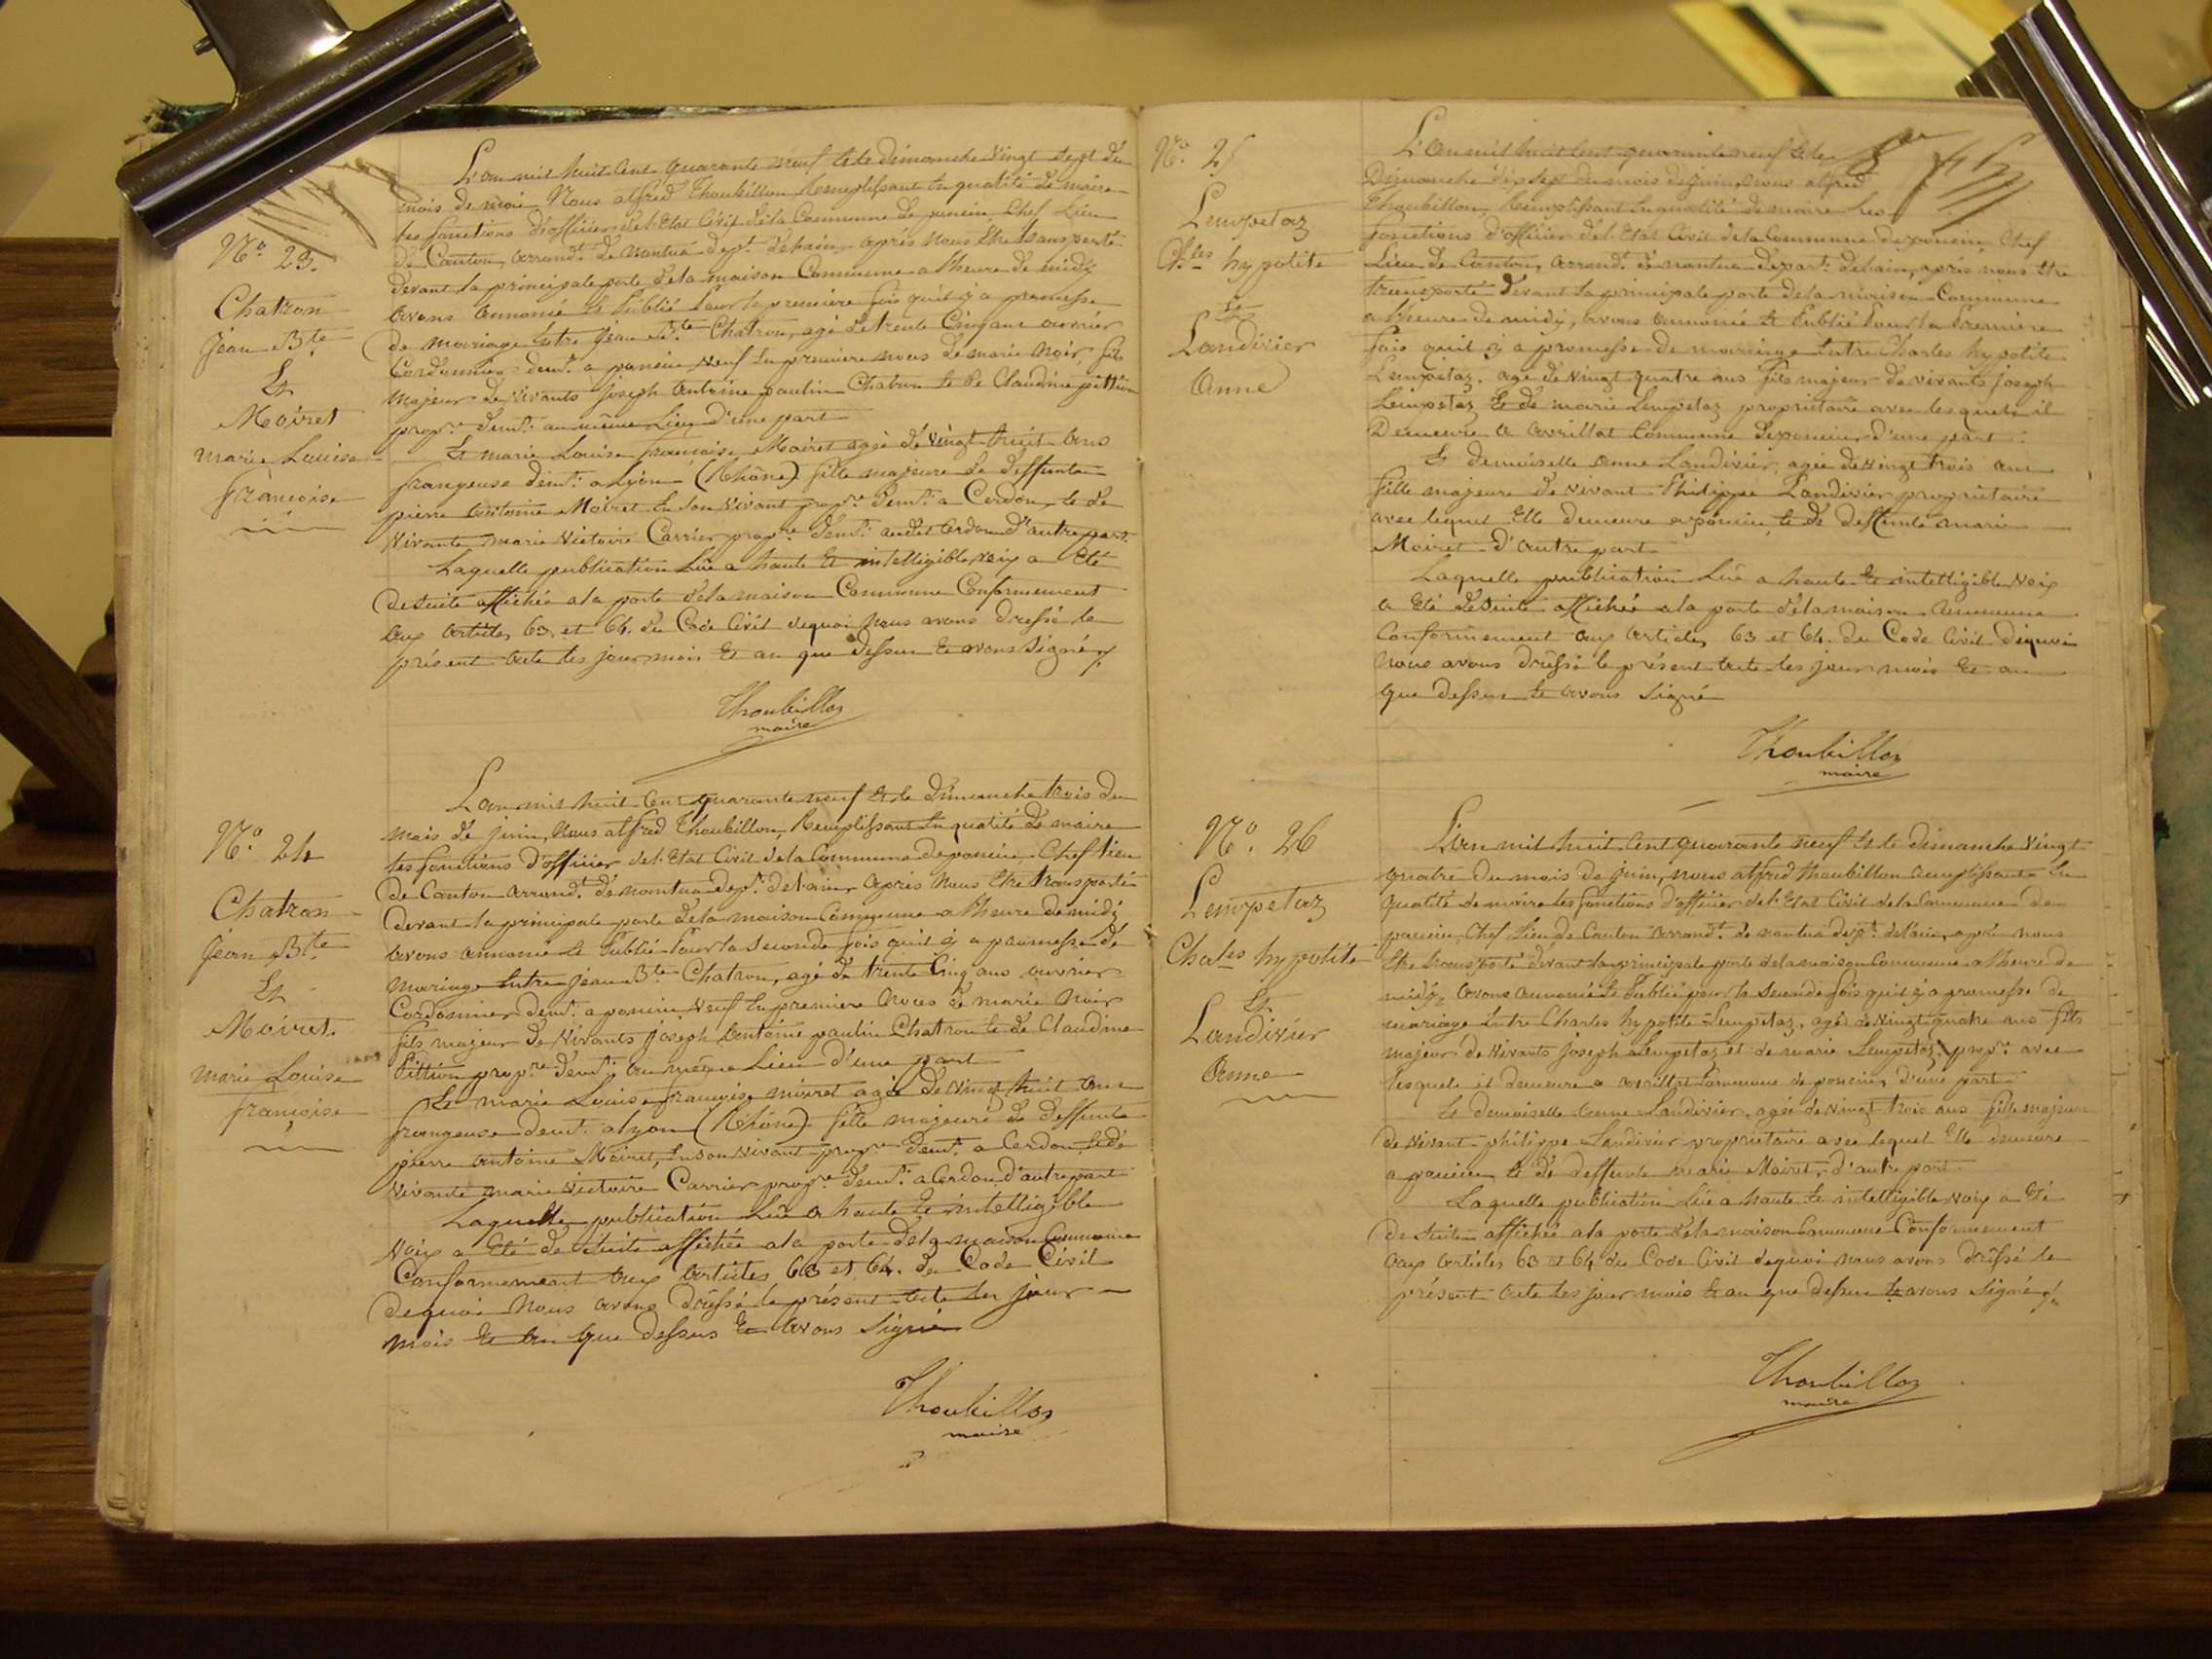 L'an mil huit cent quarante neuf et le dimanche vingt sept du
mois de mai Nous alfred Thoubillon, Remplissant en qualité de maire
les fonctions d'officier de l'Etat Civil de la Commune de poncin, Chef Lieu
de Canton, arrondt. de nantua dept. de l'ain, après nous être transporté
devant la principale porte de la maison Commune a l'heure de midy
avons annoncé et Publié Pour la premiere fois qu'il y a promesse
de mariage Entre Jean Bte. Chatron, agé de trente Cinq ans ouvrier
Cordonnier demt. a poncin Veuf En premiere noces de marie Noir, fils
majeur de Vivants Joseph antoine paulin Chatron et de Claudine pittion
propre. demt. au même Lieu d'une part
Et marie Louise françoise Moiret agée de vingt huit ans
frangeuse demt. a Lyon (Rhône) fille majeure de deffunte
pierre antoine Moiret En son vivant propre demt. a Cerdon, et de
vivante marie Victoire Carrier propre. demt. audit Cerdon d'autre part
Laquelle publication Lue a haute et intelligible voix a Eté
de suite affichée a la porte de la maison Commune Conformement
aux articles 63. et 64. du Code Civil de quoi nous avons dressé le
présent acte les jour mois et an que dessus et avons signé
Thoubillon
maire
No. 23.
Chatron
Jean Bte
Et
Moiret
marie Louise
françoise
L'an mil huit cent quarante neuf et le dimanche trois du
mois de juin, nous alfred Thoubillon, Remplissant En qualité de maire
les fonctions d'officier de l'Etat Civil de la Commune de poncin, Chef lieu
de Canton arrondt. de nantua dept. de l'ain, après nous être transporté
devant la principale porte de la maison Commune a l'heure de midy
avons annoncé et Publié Pour la seconde fois qu'il y a promesse de
mariage Entre Jean Bte. Chatron, agé de trente Cinq ans ouvrier
Cordonnier demt. a poncin Veuf En premiere noces de marie Noir
fils majeur de Vivants Joseph antoine paulin Chatron et de Claudine
Pittion propre demt. au même Lieu d'une part
Et marie Louise françoise moiret agée de vingt huit ans
frangeuse demt. a Lyon (Rhône) fille majeure de deffunte
pierre antoine Moiret, En son vivant propre demt. a Cerdon, et de
vivante marie Victoire Carrier propre demt. a Cerdon d'autre part
Laquelle publication Lue a haute et intelligible
voix a Eté de suite affichée a la porte de la maison Commune
Conformement aux articles 63 et 64. du Code Civil
de quoi nous avons dressé le présent acte les jour
mois et an que dessus et avons signé
Thoubillon
maire
No. 24
Chatron
Jean Bte
Et
Moiret.
marie Louise
françoise
No. 25
Lempetaz
Chles hypolite
Et
Landivier
Anne
L'an mil huit cent quarante neuf et le
Dimanche dix sept du mois de Juin, nous alfred
Thoubillon, Remplissant En qualité de maire les
fonctions d'officier de l'Etat Civil de la Commune de poncin, Chef
Lieu de Canton, arrondt. de nantua depart. de l'ain, après nous être
transporté devant la principale porte de la maison Commune
a l'heure de midy, avons annoncé et Publié Pour la Premiere
fois qu'il y a promesse de mariage Entre Charles hypolite
Lempetaz, agé de vingt quatre ans fils majeur de vivants Joseph
Lempetaz Et de marie Lempetaz propriétaire avec lesquels il
Demeure a avrillat Commune de poncin, d'une part
Et demoiselle anne Landivier, agée de vingt trois ans
fille majeure de vivant Philippe Landivier propriétaire
avec lequel Elle demeure a poncin et de deffunte marie
Moiret d'autre part
Laquelle publication Lue a haute et intelligible voix
a Eté de suite affichée a la porte de la maison Commune
Conformement aux articles, 63 et 64. du Code Civil de quoi
nous avons dressé le présent acte les jour mois et an
que dessus et avons signé
Thoubillon
maire
No. 26
Lempetaz
Chales hypolite
Et
Landivier
Anne
L'an mil huit cent quarante neuf et le dimanche vingt
quatre du mois de juin, nous alfred Thoubillon Remplissant En
qualité de maire les fonctions d'officier de l'Etat Civil de la Commune de
poncin, Chef Lieu de Canton arrondt. de nantua dept. de l'ain, après nous
être transporté devant la principale porte de la maison Commune a l'heure de
midy, avons annoncé et Publié pour la seconde fois qu'il y a promesse de
mariage Entre Charles hypolite Lempetaz, agé de vingt quatre ans fils
majeur de vivants Joseph Lempetaz et de marie Lempetaz, propre avec
lesquels il demeure a avrillat Commune de poncin, d'une part
Et demoiselle anne Landivier, agée de vingt trois ans fille majeure
de vivant philippe Landivier propriétaire avec lequel Elle demeure
a poncin et de deffunte marie Moiret, d'autre part
Laquelle publication Lue a haute et intelligible voix a Eté
de suite affichée a la porte de la maison Commune Conformement
aux articles 63 et 64 du Code Civil de quoi nous avons dressé le
présent acte les jour mois et an que dessus et avons signé
Thoubillon
maire